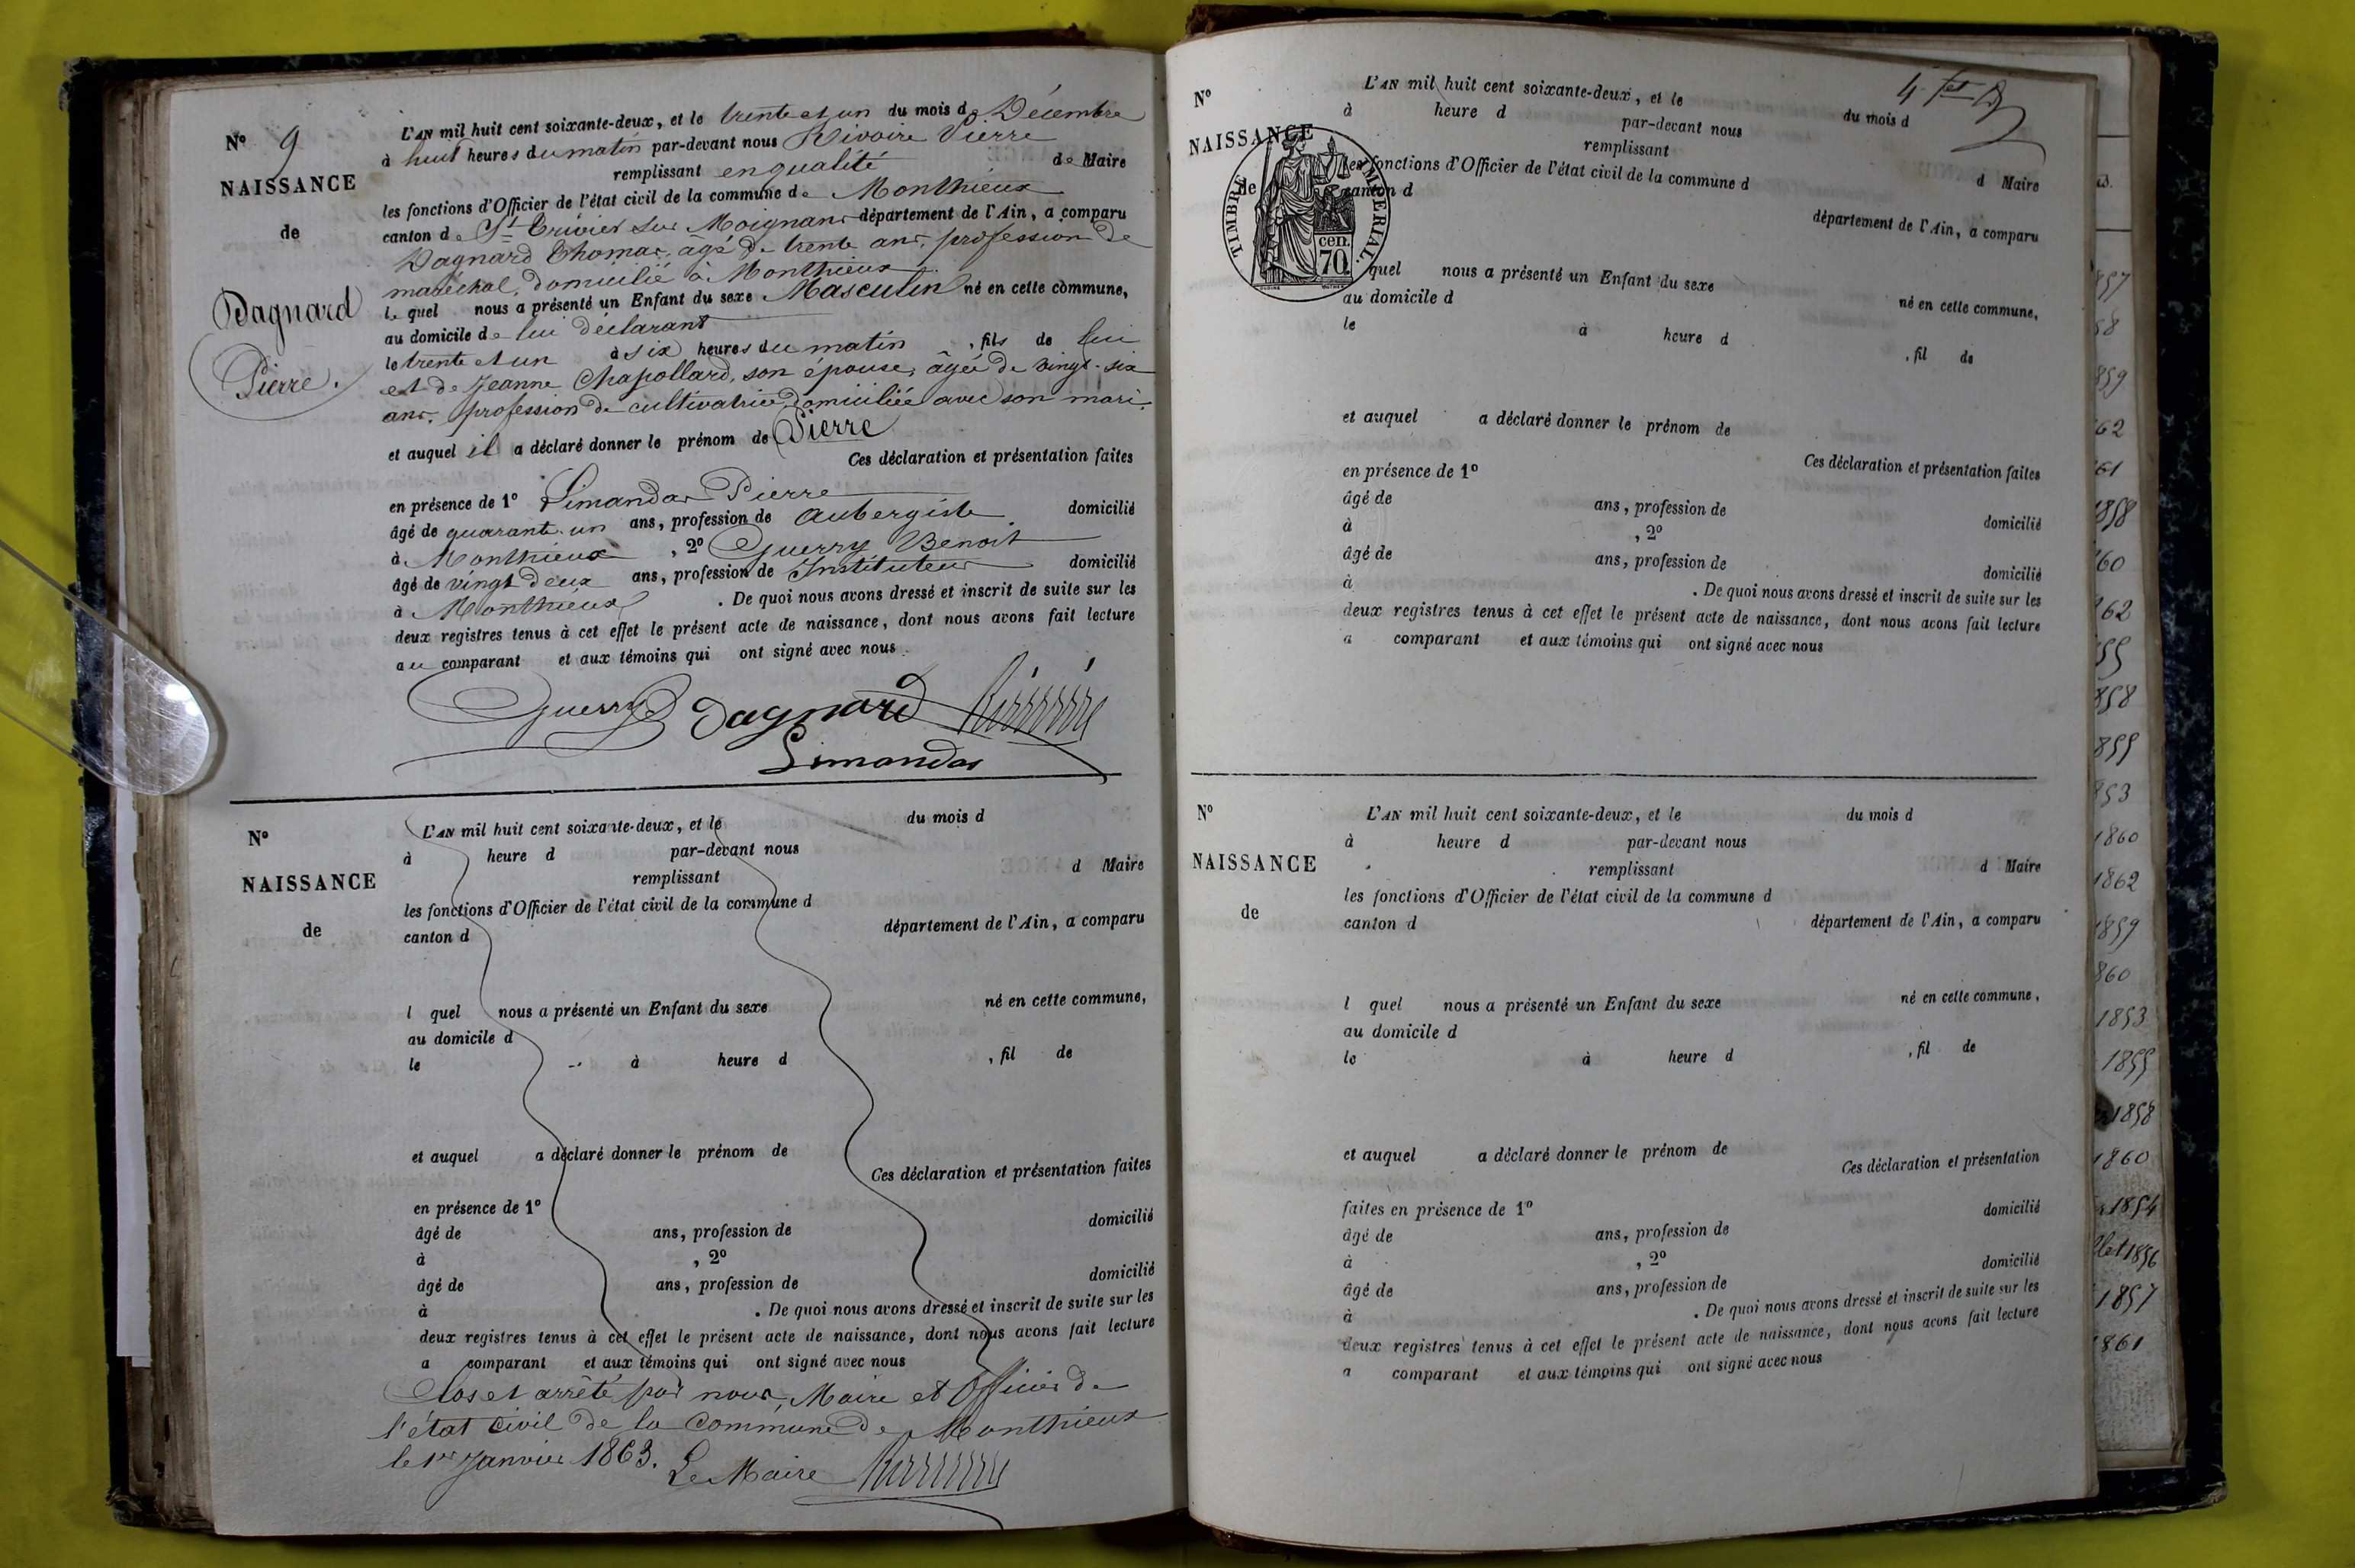 N° 9
NAISSANCE
de
Dagnard
Pierre.
L'AN mil huit cent soixante-deux, et le trente et un du mois de Décembre
à huit heures du matin par-devant nous Rivoire Pierre
remplissant en qualité de Maire
les fonctions d'Officier de l'état civil de la commune de Monthieux
canton de St Trivier sur Moignans département de l'Ain, a comparu
Dagnard Thomas, agé de trente ans, profession de
maréchal, domicilié à Monthieux
le quel nous a présenté un Enfant du sexe Masculin né en cette commune,
au domicile de lui déclarant
le trente et un à six heures du matin, fils de lui
et de Jeanne Chapollard, son épouse, âgée de vingt-six
ans, profession de cultivatrice, domiciliée avec son mari.
et auquel il a déclaré donner le prénom de Pierre
Ces déclaration et présentation faites
en présence de 1° Limandas Pierre
âgé de quarante-un ans, profession de Aubergiste domicilié
à Monthieux, 2° Guerry Benoit
âgé de vingt deux ans, profession de Instituteur domicilié
à Monthieux. De quoi nous avons dressé et inscrit de suite sur les
deux registres tenus à cet effet le présent acte de naissance, dont nous avons fait lecture
au comparant et aux témoins qui ont signé avec nous
Guerry B Dagnard Rivoire
Limandas
N°
NAISSANCE
de
L'AN mil huit cent soixante-deux, et le du mois d
à heure d par-devant nous
remplissant d Maire
les fonctions d'Officier de l'état civil de la commune d
canton d département de l'Ain, a comparu
l quel nous a présenté un Enfant du sexe né en cette commune,
au domicile d
le à heure d , fil de
et auquel a déclaré donner le prénom de
Ces déclaration et présentation faites
en présence de 1°
âgé de ans, profession de domicilié
à , 2°
âgé de ans, profession de domicilié
à . De quoi nous avons dressé et inscrit de suite sur les
deux registres tenus à cet effet le présent acte de naissance, dont nous avons fait lecture
a comparant et aux témoins qui ont signé avec nous
Clos et arrêté par nous, Maire et Officier de
l'état civil de la Commune de Monthieux
le 1er Janvier 1863. Le Maire Rivoire
N°
NAISSANCE
de
TIMBRE IMPERIAL
cen.
70
L'AN mil huit cent soixante-deux, et le du mois d
à heure d par-devant nous
remplissant d Maire
les fonctions d'Officier de l'état civil de la commune d
canton d département de l'Ain, a comparu
quel nous a présenté un Enfant du sexe né en cette commune,
au domicile d
le à heure d , fil de
et auquel a déclaré donner le prénom de
Ces déclaration et présentation faites
en présence de 1°
âgé de ans, profession de domicilié
à , 2°
âgé de ans, profession de domicilié
à . De quoi nous avons dressé et inscrit de suite sur les
deux registres tenus à cet effet le présent acte de naissance, dont nous avons fait lecture
a comparant et aux témoins qui ont signé avec nous
N°
NAISSANCE
de
L'AN mil huit cent soixante-deux, et le du mois d
à heure d par-devant nous
remplissant d Maire
les fonctions d'Officier de l'état civil de la commune d
canton d département de l'Ain, a comparu
l quel nous a présenté un Enfant du sexe né en cette commune,
au domicile d
le à heure d , fil de
et auquel a déclaré donner le prénom de
Ces déclaration et présentation
faites en présence de 1° domicilié
âgé de ans, profession de
à , 2° domicilié
âgé de ans, profession de
à . De quoi nous avons dressé et inscrit de suite sur les
deux registres tenus à cet effet le présent acte de naissance, dont nous avons fait lecture
a comparant et aux témoins qui ont signé avec nous
857
58
859
62
61
1858
60
62
55
858
855
853
1860
1862
1859
860
1853
1855
1858
1860
1854
let 1856
1857
1861